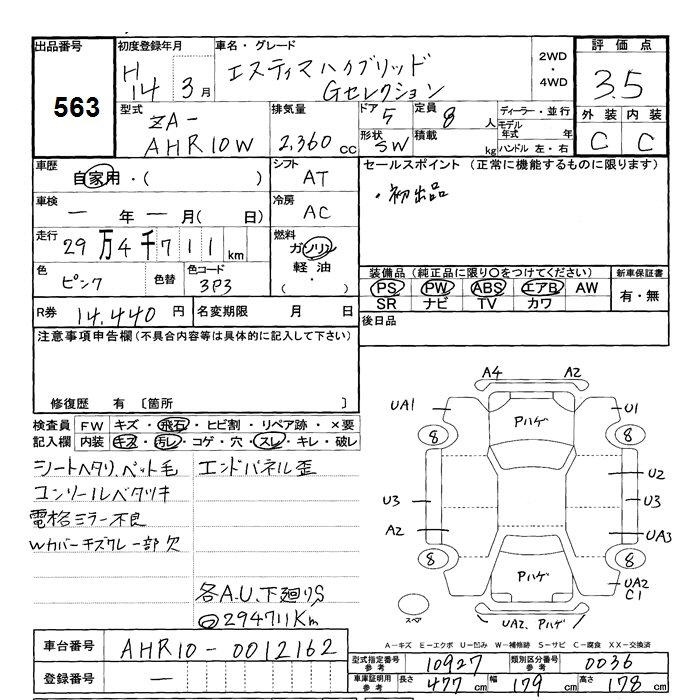 出品番号
563
初度登録年月
H14 3月
車名・グレード
エスティマハイブリッド
Gセレクション
2WD
・
4WD
評価点
3.5
外装 内装
C C
型式
ZA-
AHR10W
排気量
2,360 cc
ドア
5
定員
8 人
形状
SW
積載
kg
ディーラー・並行
モデル年式 年
ハンドル 左・右
車歴
自家用・( )
シフト
AT
車検
― 年 ― 月( 日)
冷房
AC
走行
29万4千711km
燃料
ガソリン
軽油
( ・ )
色
ピンク
色替
色コード
3P3
R券 14,440 円
名変期限 月 日
セールスポイント (正常に機能するものに限ります)
・初出品
装備品(純正品に限り〇をつけてください)
PS PW ABS エアB AW
SR ナビ TV カワ
新車保証書
有・無
後日品
注意事項申告欄(不具合内容等は具体的に記入して下さい)
修復歴 有 〔箇所
検査員記入欄
FW キズ・飛石・ヒビ割・リペア跡・×要
内装 キズ・汚レ・コゲ・穴・スレ・キレ・破レ
シートヘタリ、ペット毛
エンドパネル歪
コンソールベタツキ
電格ミラー不良
Wカバーキズワレ一部欠
各A.U.下廻りS
294711Km
A4 A2
UA1 U1
Pハゲ
8 8
U2
U3 U3
A2 UA3
8 8
Pハゲ
UA2
C1
スペア
UA2, Pハゲ
A-キズ E-エクボ U-凹み W-補修跡 S-サビ C-腐食 XX-交換済
車台番号 AHR10-0012162
登録番号 ―
型式指定番号参考 10927
類別区分番号参考 0036
車庫証明用参考 長さ 477cm 幅 179cm 高さ 178cm